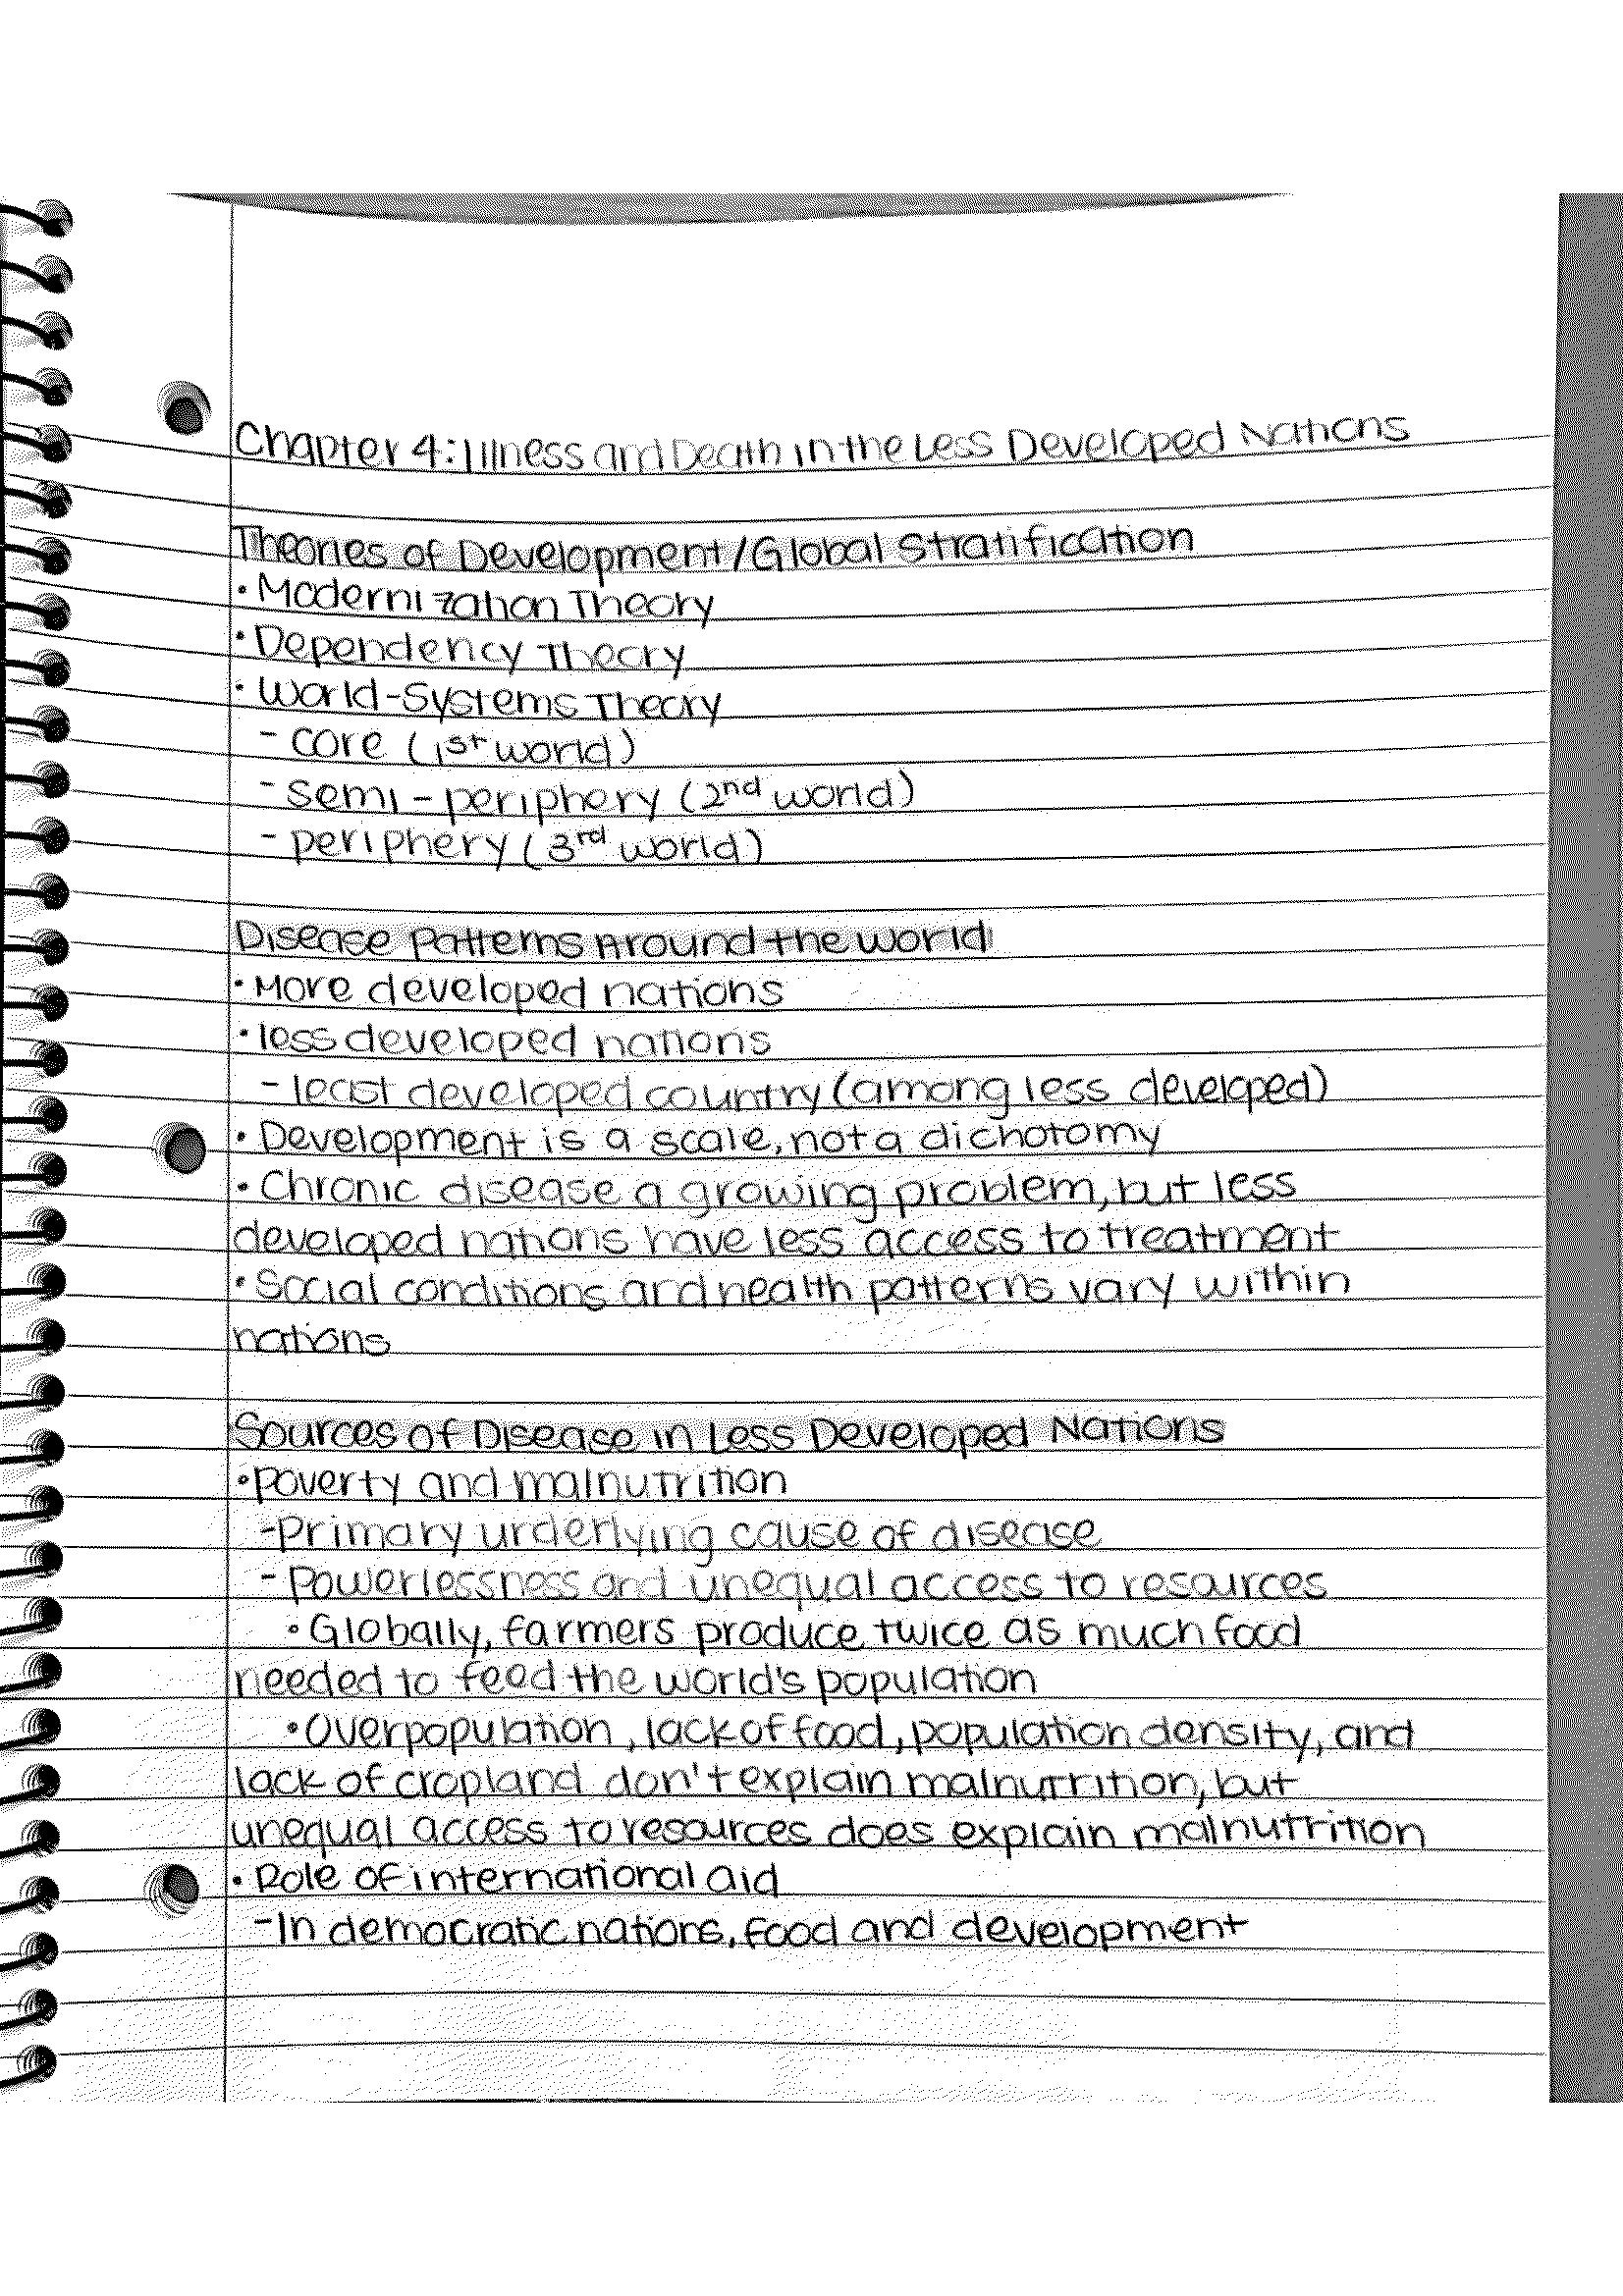 Chapter 4: Illness and Death in the Less Developed Nations
Theories of Development/Global Stratification
• Modernization Theory
• Dependency Theory
• World-Systems Theory
- core (1st world)
- semi-periphery (2nd world)
- periphery (3rd world)
Disease Patterns Around the World
• More developed nations
• less developed nations
- least developed country (among less developed)
• Development is a scale, not a dichotomy
• Chronic disease a growing problem, but less
developed nations have less access to treatment
• Social conditions and health patterns vary within
nations
Sources of Disease in Less Developed Nations
• Poverty and malnutrition
- Primary underlying cause of disease
- Powerlessness and unequal access to resources
• Globally, farmers produce twice as much food
needed to feed the world's population
• Overpopulation, lack of food, population density, and
lack of cropland don't explain malnutrition, but
unequal access to resources does explain malnutrition
• Role of international aid
- In democratic nations, food and development